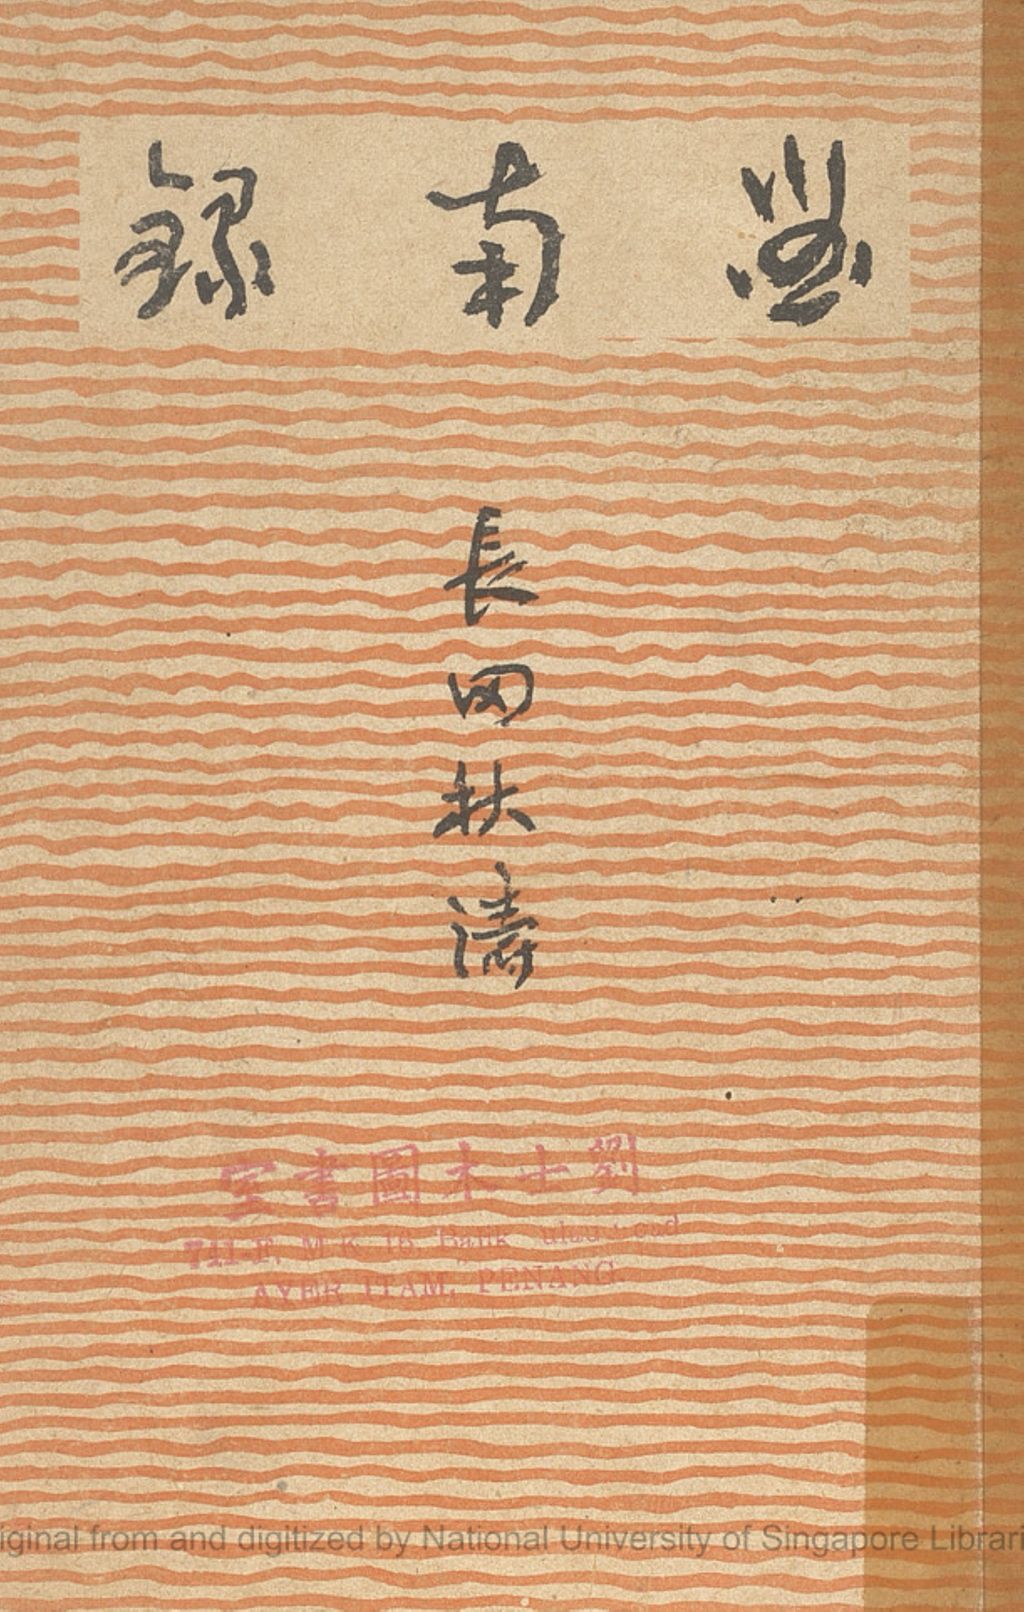 圖南錄
長田秋濤
劉士木圖書室
741-F, M.K. 18, Balik
AYER ITAM, PENANG.
iginal from and digitized by National University of Singapore Librari